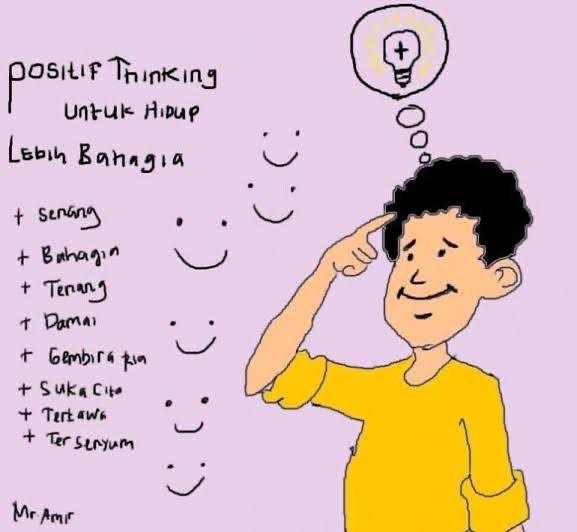 Positif Thinking
untuk Hidup
Lebih Bahagia
+ Senang
+ Bahagia
+ Tenang
+ Damai
+ Gembira ria
+ Suka Cita
+ Tertawa
+ Tersenyum
Mr. Amir
+